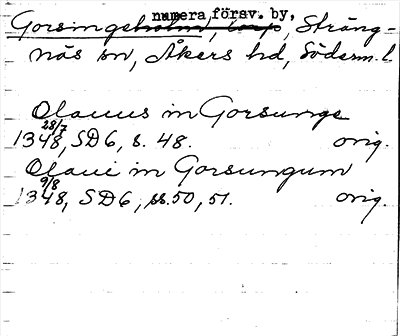 numera försv. by,
Gorsingeholm, torp, Sträng-
näs sn, Åkers hd, Söderm. l.
Olauus in Gorsunge
28/7
1348, SD6, s. 48. orig.
Olaui in Gorsungum
9/8
1348, SD6, ss.50, 51. orig.